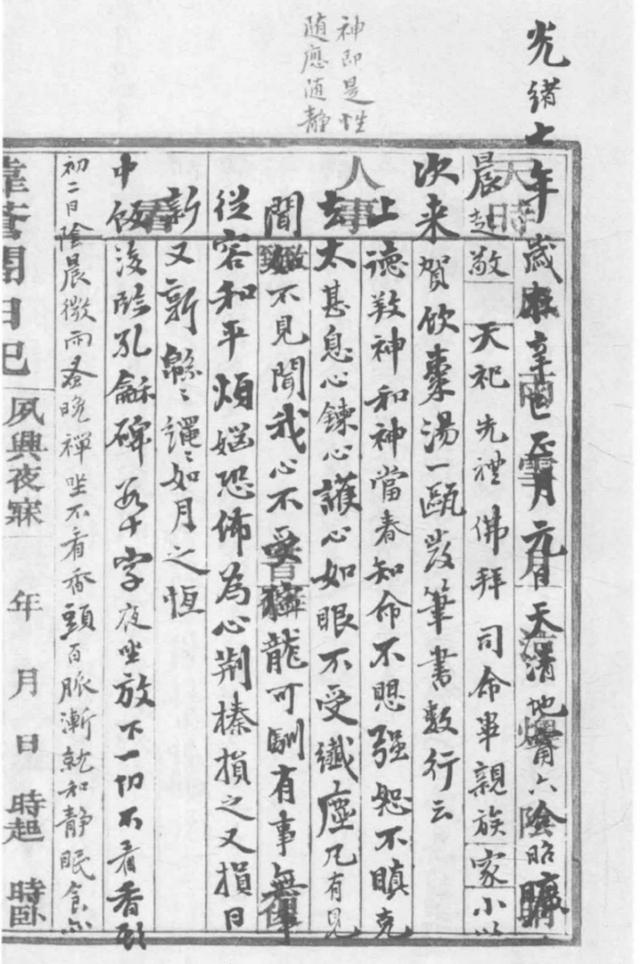 神即是性
随應随静
光緒七年歲在辛巳正月元日天清地甯六陰昭曠
晨起敬天祀先禮佛拜司命畢親族家小以
次来賀飲棗湯一甌發筆書数行云
上德敦神和神當春知命不思強恕不瞋克
去太甚息心鍊心護心如眼不受纖塵凡有見
聞如不見聞我心不受獰龍可馴有事無事
從容和平煩惱恐怖為心荊榛損之又損日
新又新緜緜繩繩如月之恆
中飯後臨孔龢碑若干字夜坐放下一切不看香頭
初二日陰晨微雨蚤晚禪坐不看香頭百脈漸就和静眠食亦
日记
夙興夜寐 年 月 日 時起 時卧
天時
人事